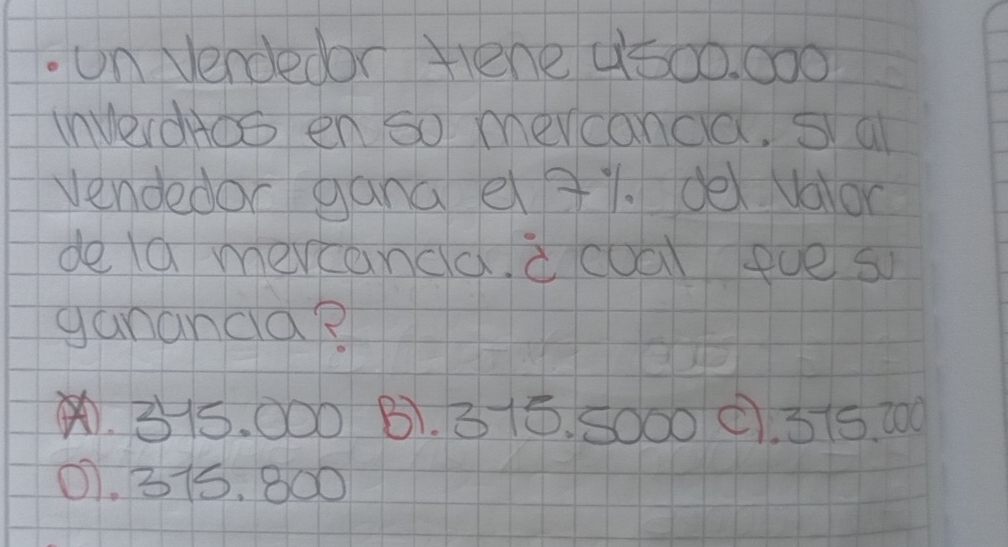 • Un Vendedor tiene 4'500.000
inverditos en so mercancia. Si al
vendedor gana el 7%. del valor
de la mercancia. ¿ coal fue su
ganancia?
A). 315.000 B). 315.5000 C). 315.200
D). 315.800